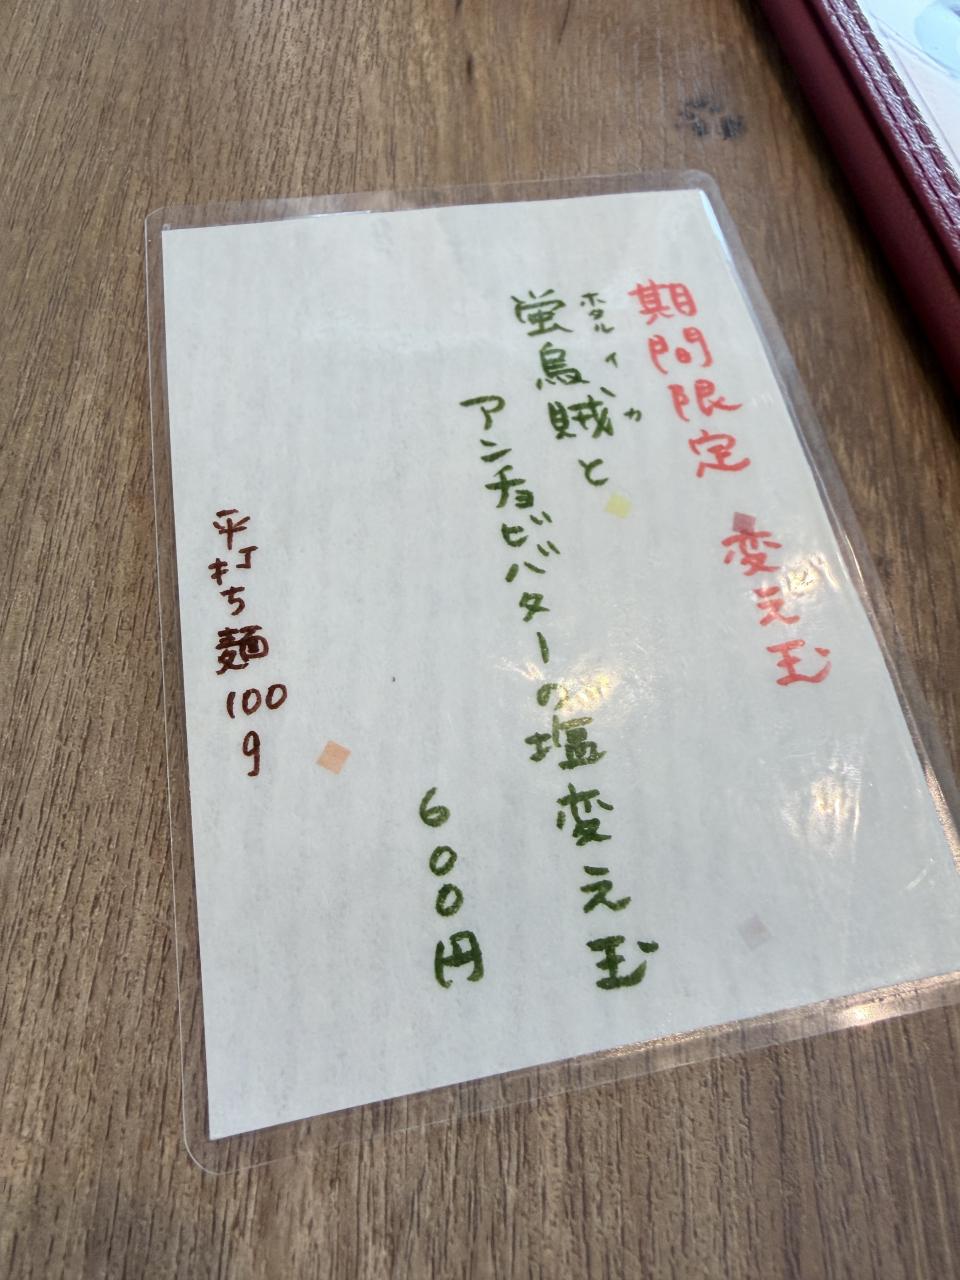 期間限定 変え玉
ホタルイカ
蛍烏賊と
アンチョビバターの塩変え玉
600円
平打ち麺100g